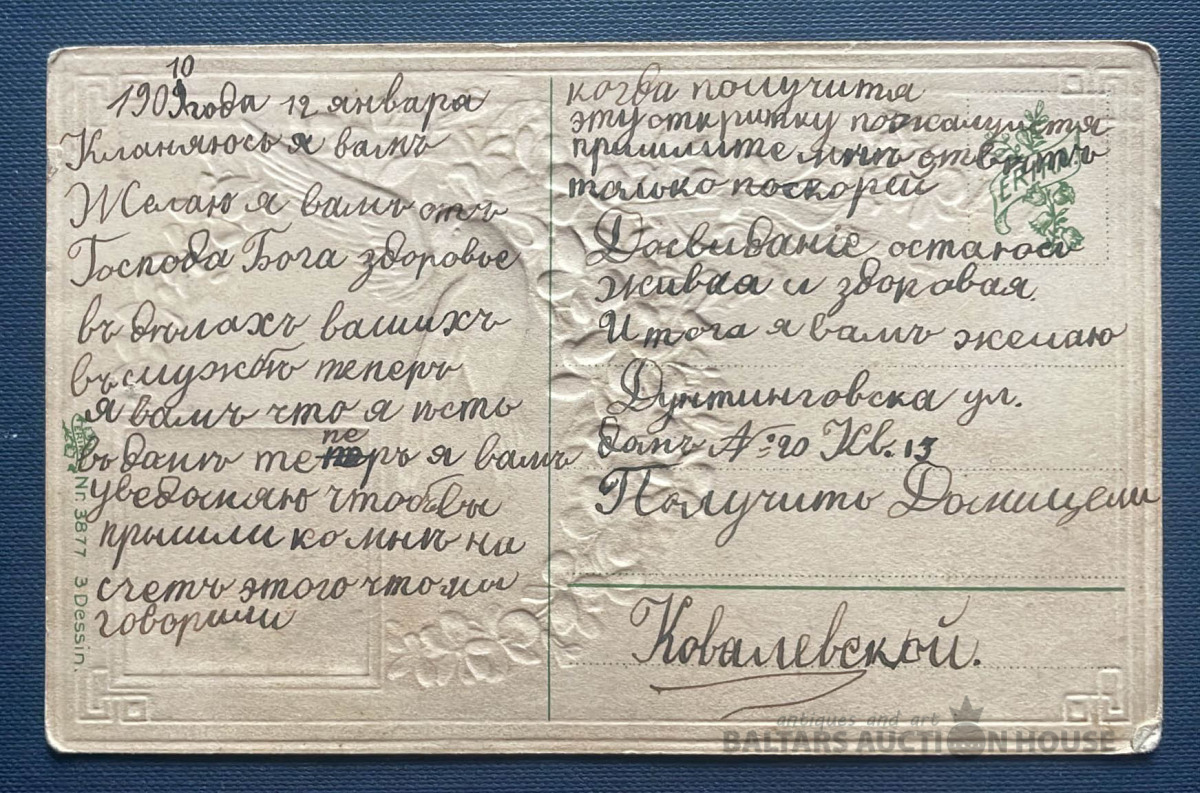 10
1909 года 12 января
Кланяюсь я вамъ
Желаю я вамъ отъ
Господа Бога здоровье
въ дѣлахъ вашихъ
въ службѣ теперъ
я вамъ что я ѣсть
въ домѣ теперъ я вамъ
уведомляю чтобы вы
пришли ко мнѣ на
счетъ этого что мы
говорили
когда получитя
эту открытку пожалуйстя
пришлите мнѣ отвѣтъ
только поскорей
Досвиданіе остаюсь
живая и здоравая
И тога я вамъ желаю
Дунтинговска ул.
домъ № 20 Кв. 13
Получить Домицели
Ковалевской.
ERIKA
Nr. 3877 3 Dessin.
antiques and art
BALTARS AUCTION HOUSE